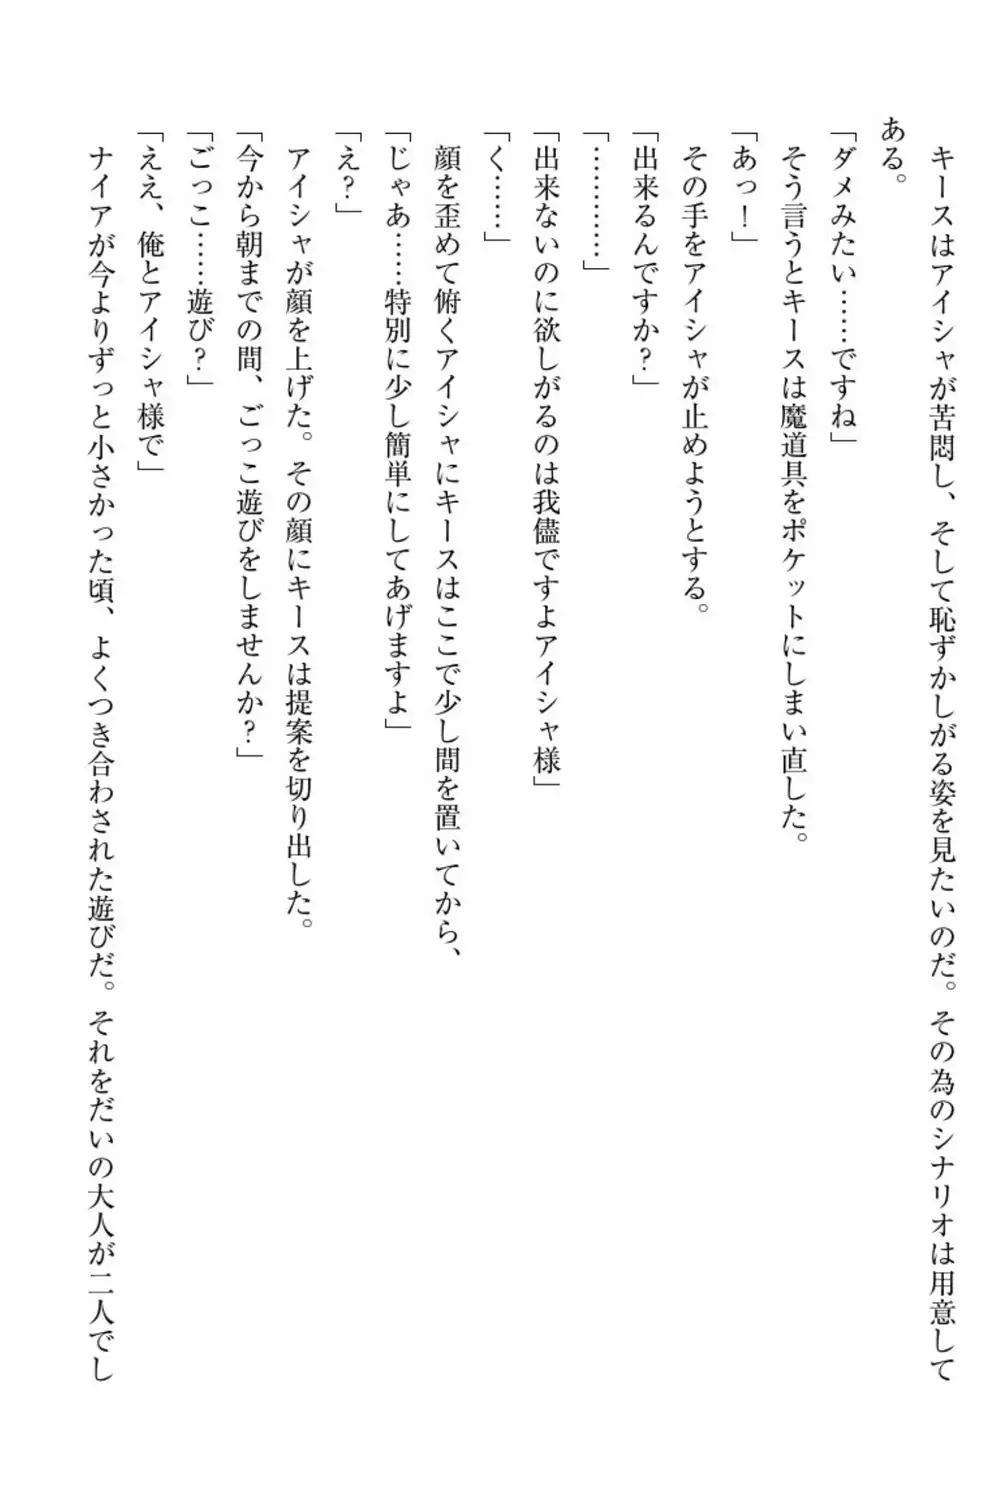 キースはアイシャが苦悶し、そして恥ずかしがる姿を見たいのだ。その為のシナリオは用意して
ある。
「ダメみたい……ですね」
そう言うとキースは魔道具をポケットにしまい直した。
「あっ！」
その手をアイシャが止めようとする。
「出来るんですか？」
「…………」
「出来ないのに欲しがるのは我儘ですよアイシャ様」
「く……」
顔を歪めて俯くアイシャにキースはここで少し間を置いてから、
「じゃあ……特別に少し簡単にしてあげますよ」
「え？」
アイシャが顔を上げた。その顔にキースは提案を切り出した。
「今から朝までの間、ごっこ遊びをしませんか？」
「ごっこ……遊び？」
「ええ、俺とアイシャ様で」
ナイアが今よりずっと小さかった頃、よくつき合わされた遊びだ。それをだいの大人が二人でし